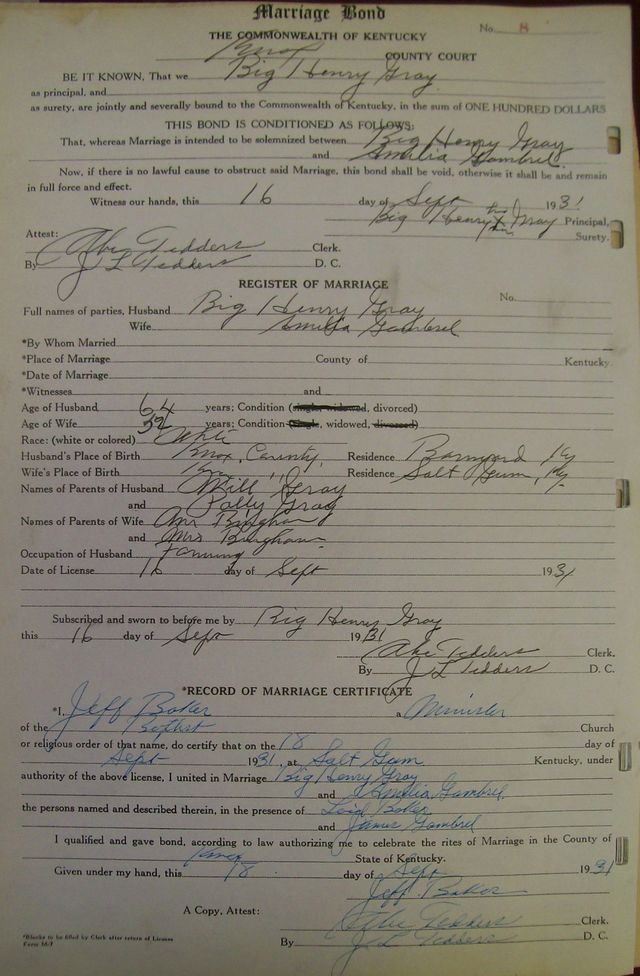 Marriage Bond
No. 8
THE COMMONWEALTH OF KENTUCKY
Knox COUNTY COURT
BE IT KNOWN, That we Big Henry Gray
as principal, and
as surety, are jointly and severally bound to the Commonwealth of Kentucky, in the sum of ONE HUNDRED DOLLARS
THIS BOND IS CONDITIONED AS FOLLOWS:
That, whereas Marriage is intended to be solemnized between Big Henry Gray
and Amelia Gambrel
Now, if there is no lawful cause to obstruct said Marriage, this bond shall be void, otherwise it shall be and remain
in full force and effect.
Witness our hands, this 16 day of Sept 1931
Big Henry his X Gray Principal,
Surety.
Attest:
Abe Tedders Clerk.
By J L Tedders D. C.
REGISTER OF MARRIAGE
No.
Full names of parties, Husband Big Henry Gray
Wife Amelia Gambrel
*By Whom Married
*Place of Marriage County of Kentucky
*Date of Marriage
*Witnesses and
Age of Husband 64 years; Condition (single, widowed, divorced)
Age of Wife 52 years; Condition (single, widowed, divorced)
Race: (white or colored) White
Husband's Place of Birth Knox, County, Residence Barnyard Ky
Wife's Place of Birth Residence Salt Gum, Ky
Names of Parents of Husband Will Gray
and Polly Gray
Names of Parents of Wife Bingham
and Mrs Bingham
Occupation of Husband Farming
Date of License 16 day of Sept 1931
Subscribed and sworn to before me by Big Henry Gray
this 16 day of Sept 1931
Abe Tedders Clerk.
By J L Tedders D. C.
*RECORD OF MARRIAGE CERTIFICATE
*I, Jeff Baker a Minister
of the Baptist Church
or religious order of that name, do certify that on the 18 day of
Sept 1931, at Salt Gum Kentucky, under
authority of the above license, I united in Marriage Big Henry Gray
and Amelia Gambrel
the persons named and described therein, in the presence of Baker
and James Gambrel
I qualified and gave bond, according to law authorizing me to celebrate the rites of Marriage in the County of
Knox State of Kentucky.
Given under my hand, this 18 day of Sept 1931
Jeff Baker
A Copy, Attest: Abe Tedders Clerk.
By J L Tedders D. C.
*Blanks to be filled by Clerk after return of License